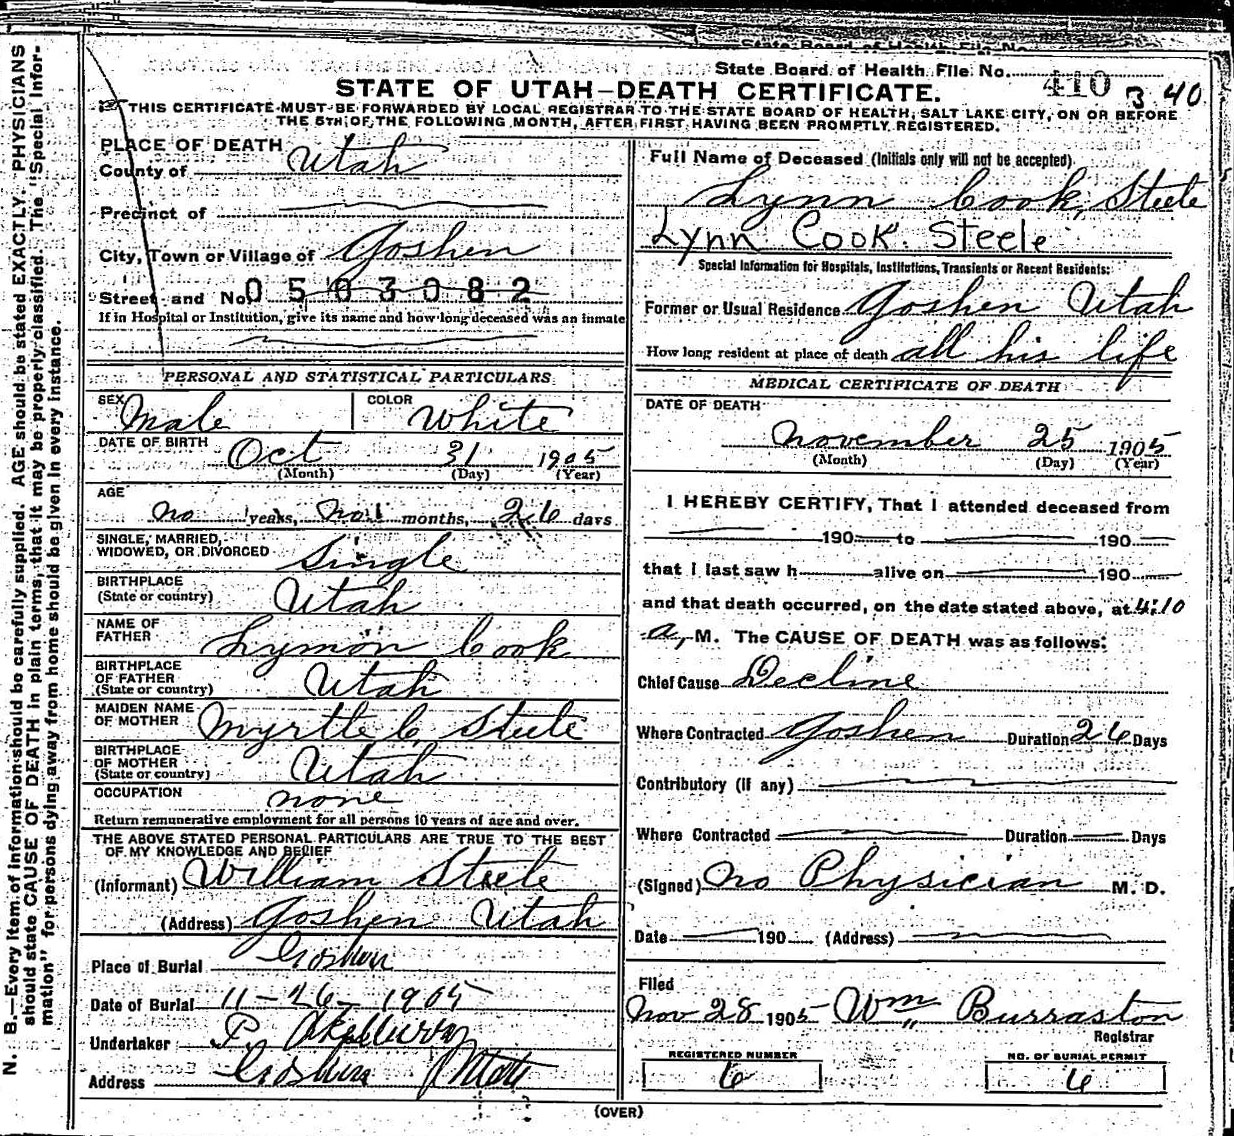 State Board of Health File No.
State Board of Health File No. 410 3 40
STATE OF UTAH–DEATH CERTIFICATE.
THIS CERTIFICATE MUST BE FORWARDED BY LOCAL REGISTRAR TO THE STATE BOARD OF HEALTH, SALT LAKE CITY, ON OR BEFORE
THE 5TH OF THE FOLLOWING MONTH, AFTER FIRST HAVING BEEN PROMPTLY REGISTERED.
N. B.—Every item of information should be carefully supplied. AGE should be stated EXACTLY. PHYSICIANS
should state CAUSE OF DEATH in plain terms, that it may be properly classified. The "Special Infor-
mation" for persons dying away from home should be given in every instance.
PLACE OF DEATH
County of Utah
Precinct of
City, Town or Village of Goshen
Street and No. 0503082
If in Hospital or Institution, give its name and how long deceased was an inmate
PERSONAL AND STATISTICAL PARTICULARS
SEX Male COLOR White
DATE OF BIRTH Oct 31 1905
(Month) (Day) (Year)
AGE
no years, no months, 26 days
SINGLE, MARRIED,
WIDOWED, OR DIVORCED Single
BIRTHPLACE
(State or country) Utah
NAME OF
FATHER Lymon Cook
BIRTHPLACE
OF FATHER
(State or country) Utah
MAIDEN NAME
OF MOTHER Myrtle C. Steele
BIRTHPLACE
OF MOTHER
(State or country) Utah
OCCUPATION none
Return remunerative employment for all persons 10 years of age and over.
THE ABOVE STATED PERSONAL PARTICULARS ARE TRUE TO THE BEST
OF MY KNOWLEDGE AND BELIEF
(Informant) William Steele
(Address) Goshen Utah
Place of Burial Goshen
Date of Burial 11-26-1905
Undertaker P.
Address Goshen Utah
Full Name of Deceased (Initials only will not be accepted)
Lynn Cook, Steele
Lynn Cook. Steele
Special Information for Hospitals, Institutions, Transients or Recent Residents:
Former or Usual Residence Goshen Utah
How long resident at place of death all his life
MEDICAL CERTIFICATE OF DEATH
DATE OF DEATH
November 25 1905
(Month) (Day) (Year)
I HEREBY CERTIFY, That I attended deceased from
190 to 190
that I last saw h alive on 190
and that death occurred, on the date stated above, at 4:10
a, M. The CAUSE OF DEATH was as follows:
Chief Cause Decline
Where Contracted Goshen Duration 26 Days
Contributory (if any)
Where Contracted Duration Days
(Signed) No Physician M. D.
Date 190 (Address)
Filed
Nov 28 1905 Wm Burraston
Registrar
REGISTERED NUMBER NO. OF BURIAL PERMIT
6 6
(OVER)